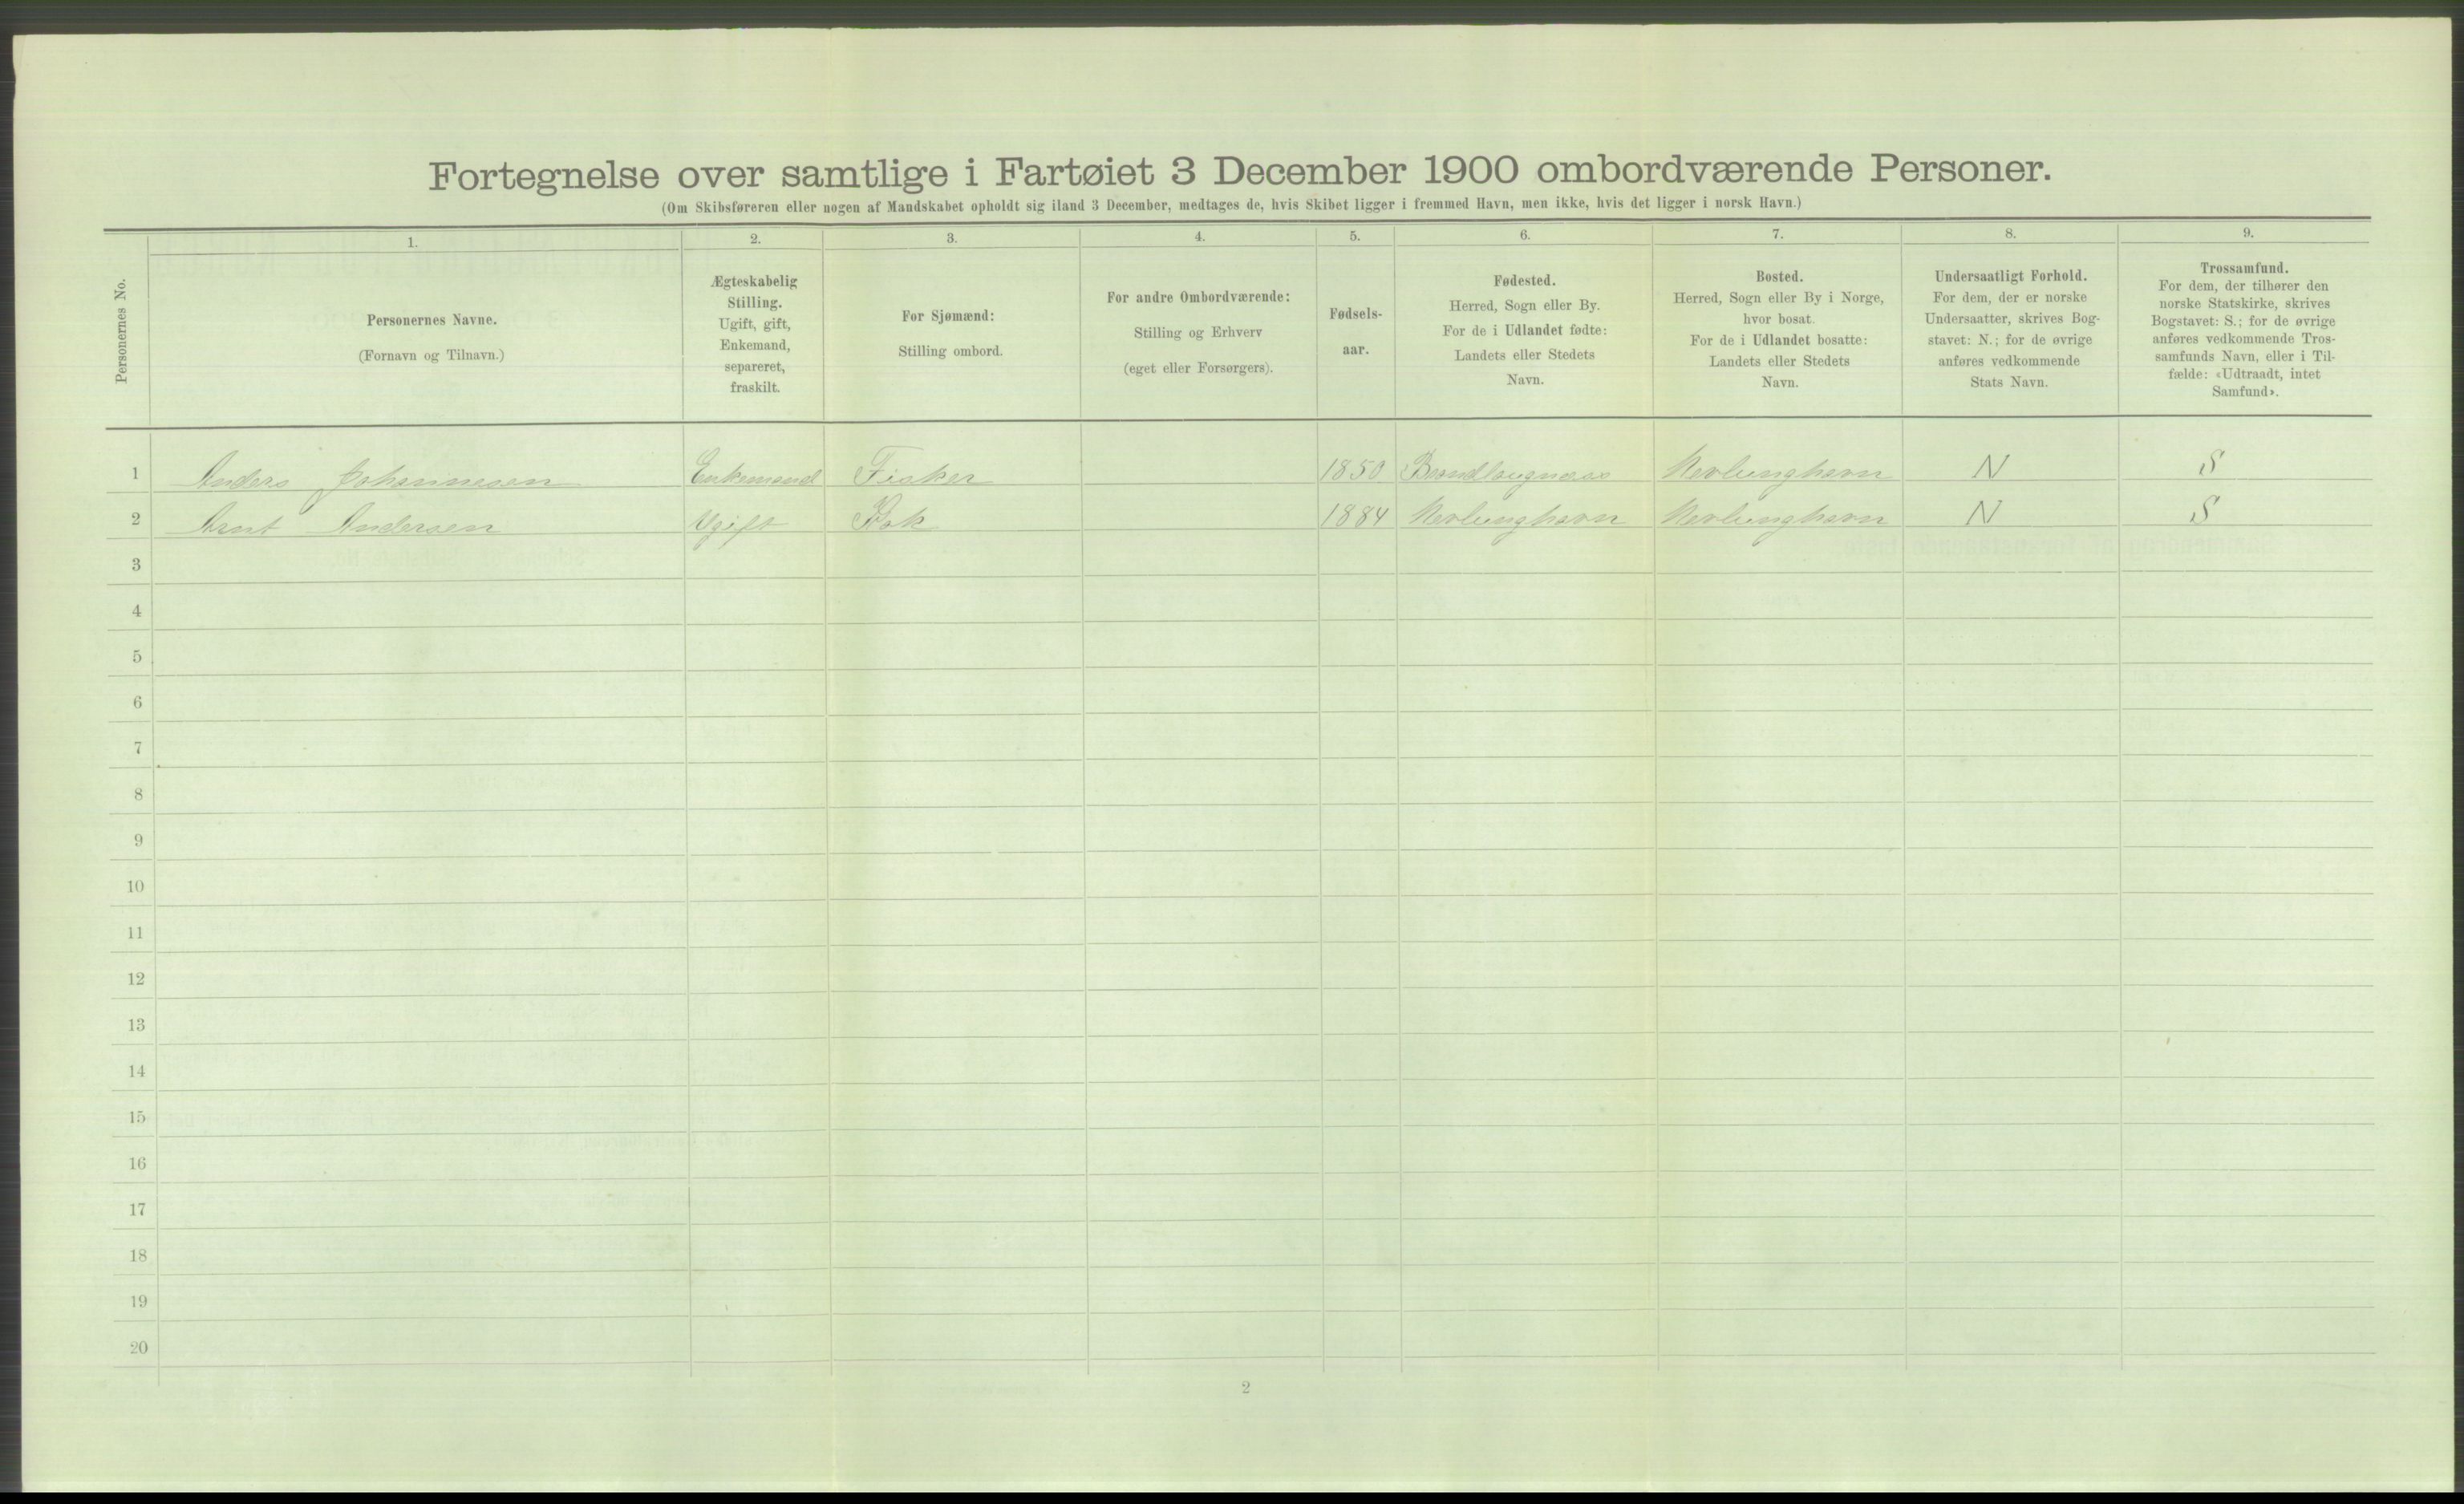 Fortegnelse over samtlige i Fartøiet 3 December 1900 ombordværende Personer.
(Om Skibsføreren eller nogen af Mandskabet opholdt sig iland 3 December, medtages de, hvis Skibet ligger i fremmed Havn, men ikke, hvis det ligger i norsk Havn.)
Personernes No.
1.
Personernes Navne.
(Fornavn og Tilnavn.)
2.
Ægteskabelig
Stilling.
Ugift, gift,
Enkemand,
separeret,
fraskilt.
3.
For Sjømænd:
Stilling ombord.
4.
For andre Ombordværende:
Stilling og Erhverv
(eget eller Forsørgers).
5.
Fødsels-
aar.
6.
Fødested.
Herred, Sogn eller By.
For de i Udlandet fødte:
Landets eller Stedets
Navn.
7.
Bosted.
Herred, Sogn eller By i Norge,
hvor bosat.
For de i Udlandet bosatte:
Landets eller Stedets
Navn.
8.
Undersaatligt Forhold.
For dem, der er norske
Undersaatter, skrives Bog-
stavet: N.; for de øvrige
anføres vedkommende
Stats Navn.
9.
Trossamfund.
For dem, der tilhører den
norske Statskirke, skrives
Bogstavet: S.; for de øvrige
anføres vedkommende Tros-
samfunds Navn, eller i Til-
fælde: «Udtraadt, intet
Samfund».
1 Anders Johannesen Enkemand Fisker 1850 Nevlunghavn N S
2 Arnt Andersen Ugift Kok 1884 Nevlunghavn Nevlunghavn N S
3
4
5
6
7
8
9
10
11
12
13
14
15
16
17
18
19
20
2